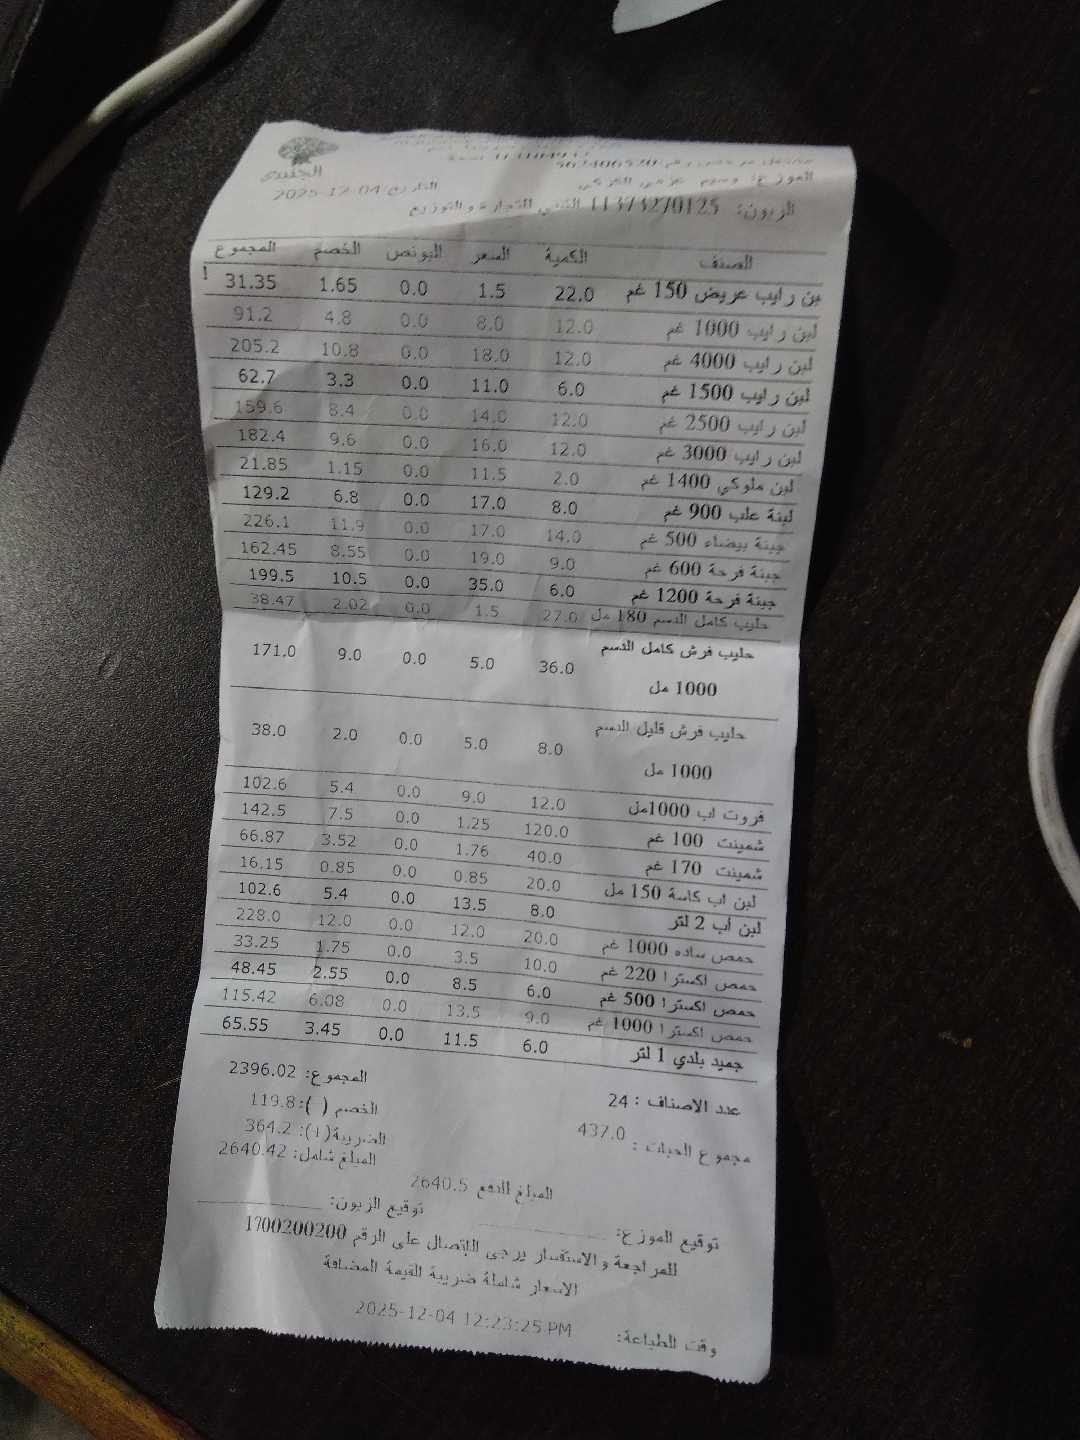 الجنيدي
مشتغل مرخص رقم 562406920
الموزع: وسيم عزمي الكركي
التاريخ: 2025-12-04
الزبون: 11373270125 الفني للتجارة والتوزيع
الصنف الكمية السعر البونص الخصم المجموع
لبن رايب عريض 150 غم 22.0 1.5 0.0 1.65 31.35 1
لبن رايب 1000 غم 12.0 8.0 0.0 4.8 91.2
لبن رايب 4000 غم 12.0 18.0 0.0 10.8 205.2
لبن رايب 1500 غم 6.0 11.0 0.0 3.3 62.7
لبن رايب 2500 غم 12.0 14.0 0.0 8.4 159.6
لبن رايب 3000 غم 12.0 16.0 0.0 9.6 182.4
لبن ملوكي 1400 غم 2.0 11.5 0.0 1.15 21.85
لبنة علب 900 غم 8.0 17.0 0.0 6.8 129.2
جبنة بيضاء 500 غم 14.0 17.0 0.0 11.9 226.1
جبنة فرحة 600 غم 9.0 19.0 0.0 8.55 162.45
جبنة فرحة 1200 غم 6.0 35.0 0.0 10.5 199.5
حليب كامل الدسم 180 مل 27.0 1.5 0.0 2.02 38.47
حليب فرش كامل الدسم
1000 مل 36.0 5.0 0.0 9.0 171.0
حليب فرش قليل الدسم
1000 مل 8.0 5.0 0.0 2.0 38.0
فروت اب 1000مل 12.0 9.0 0.0 5.4 102.6
شمينت 100 غم 120.0 1.25 0.0 7.5 142.5
شمينت 170 غم 40.0 1.76 0.0 3.52 66.87
لبن اب كاسة 150 مل 20.0 0.85 0.0 0.85 16.15
لبن أب 2 لتر 8.0 13.5 0.0 5.4 102.6
حمص ساده 1000 غم 20.0 12.0 0.0 12.0 228.0
حمص اكسترا 220 غم 10.0 3.5 0.0 1.75 33.25
حمص اكسترا 500 غم 6.0 8.5 0.0 2.55 48.45
حمص اكسترا 1000 غم 9.0 13.5 0.0 6.08 115.42
جميد بلدي 1 لتر 6.0 11.5 0.0 3.45 65.55
المجموع: 2396.02
عدد الاصناف : 24
الخصم ( ): 119.8
الضريبة(+): 364.2
مجموع الحبات : 437.0
المبلغ شامل: 2640.42
المبلغ للدفع 2640.5
توقيع الموزع: توقيع الزبون:
للمراجعة والاستفسار يرجى الإتصال على الرقم 1700200200
الاسعار شاملة ضريبة القيمة المضافة
وقت الطباعة: 2025-12-04 12:23:25 PM